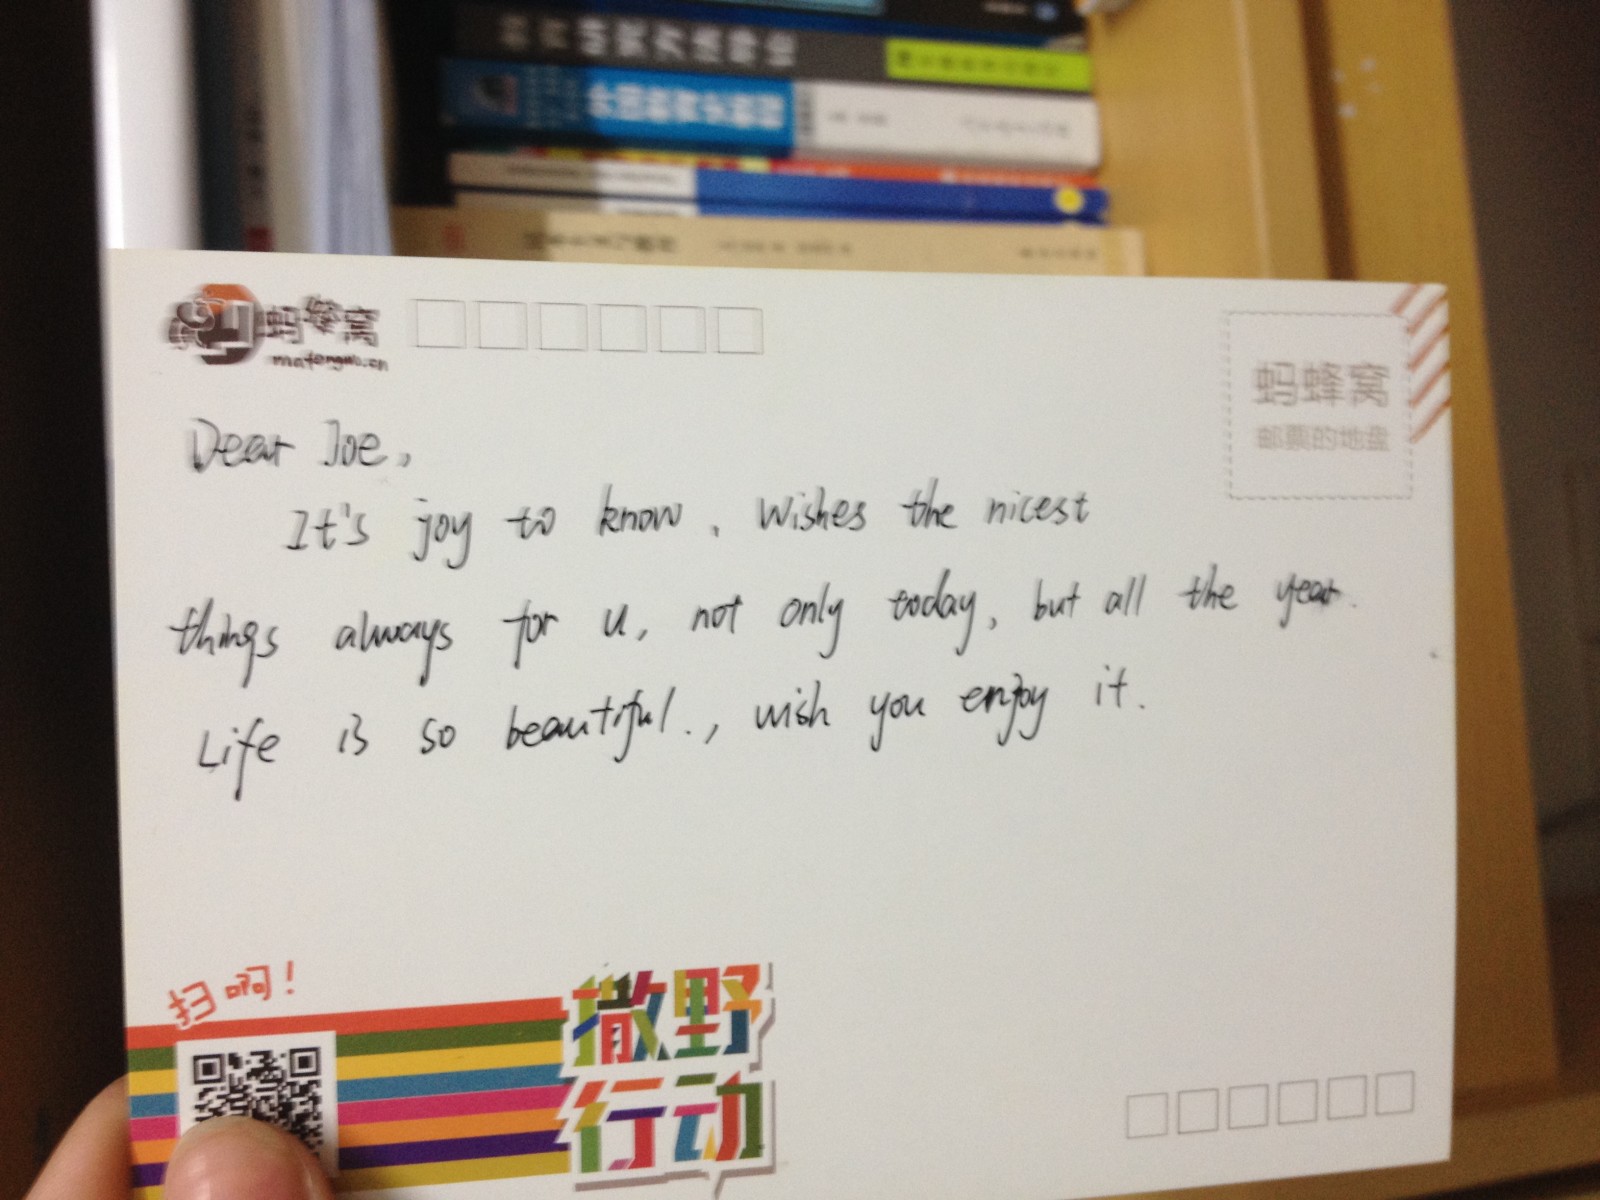 蚂蜂窝
mafengwo.cn
蚂蜂窝
邮票的地盘
Dear Joe,
It's joy to know, wishes the nicest
things always for u, not only today, but all the year.
Life is so beautiful., wish you enjoy it.
扫啊!
撒野
行动